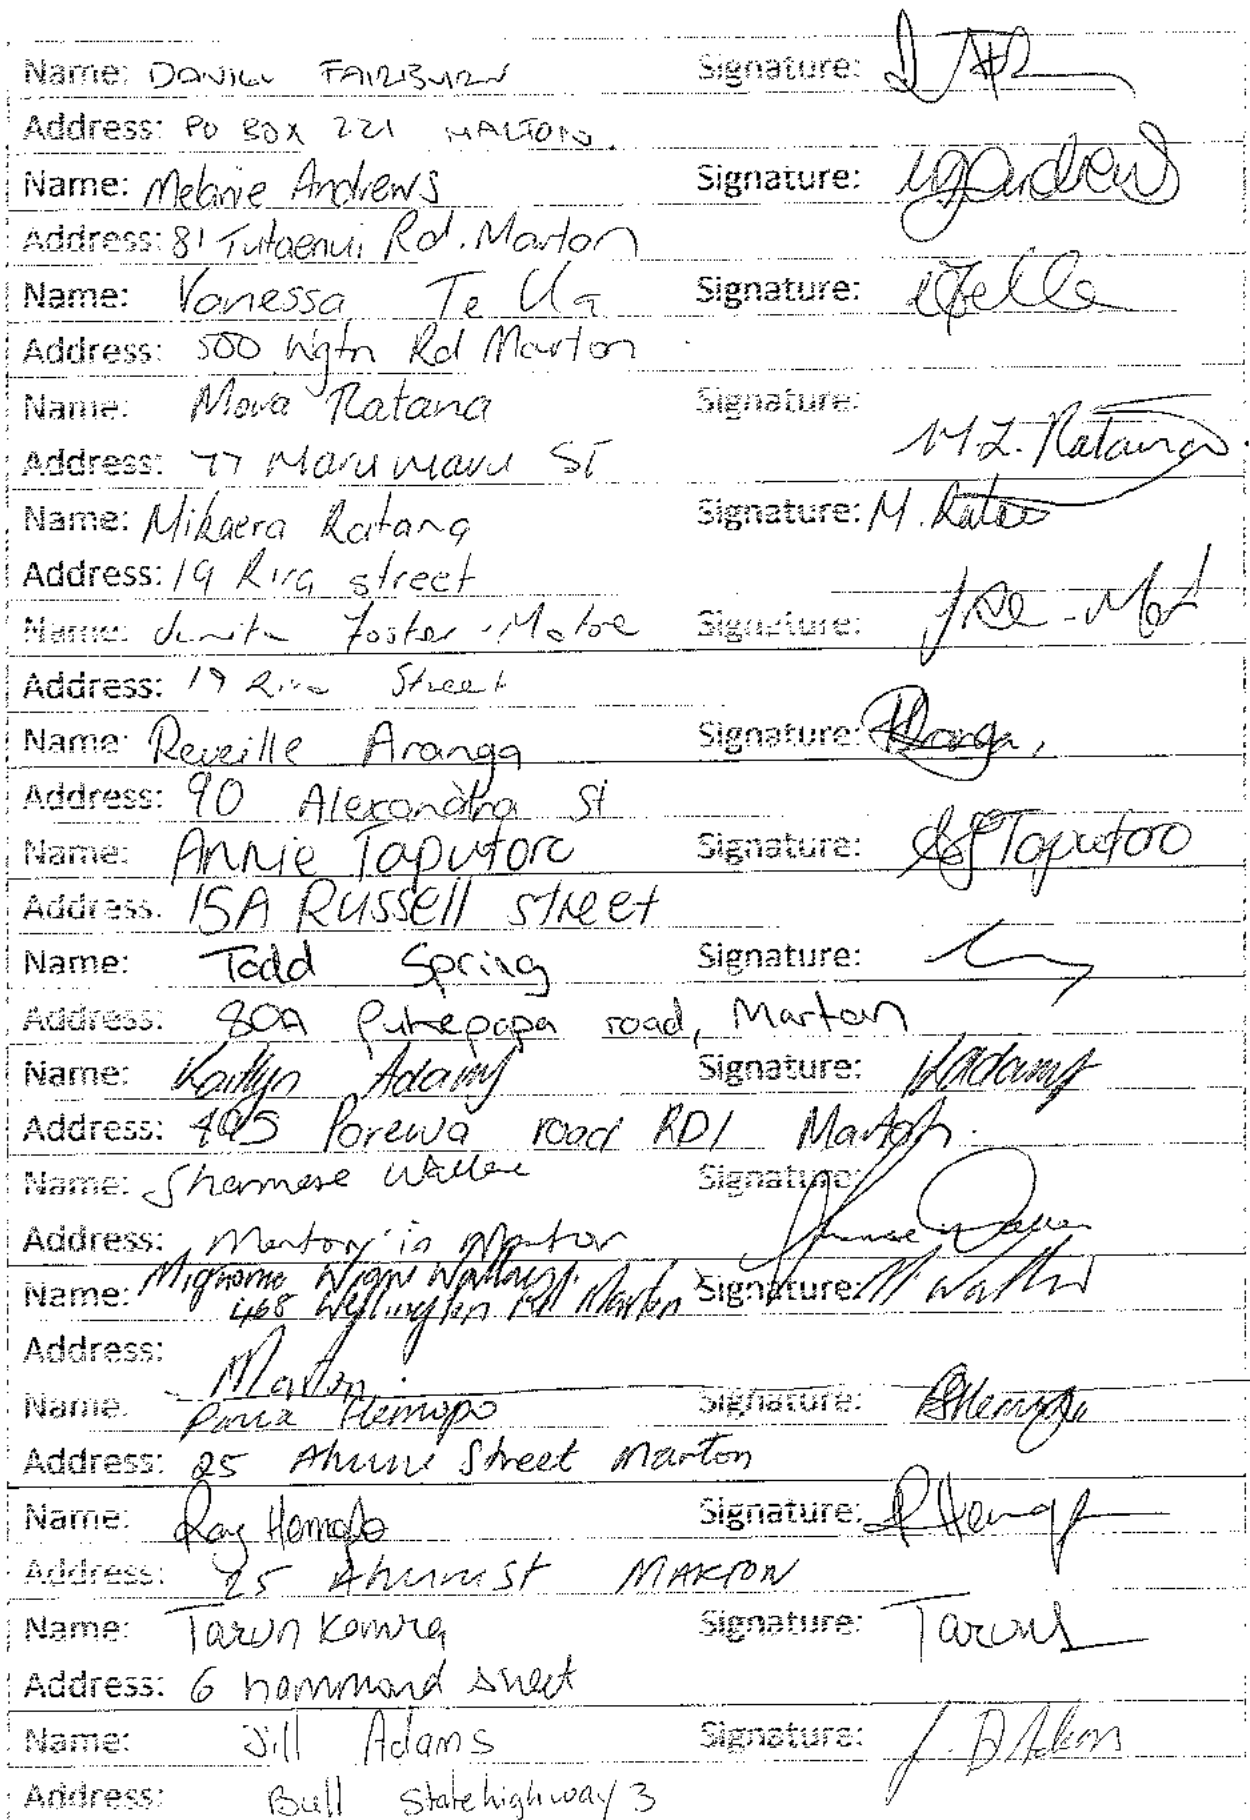 Name: DANIEL FAIRBURN Signature:
Address: PO BOX 221 MARTON.
Name: Melanie Andrews Signature: mgandrews
Address: 81 Tutaenui Rd. Marton
Name: Vanessa Te Ua Signature:
Address: 500 Wgtn Rd Marton
Name: Mova Ratana Signature:
Address: 77 Maru maru ST M.L. Ratana
Name: Mikaera Ratana Signature: M. Ratana
Address: 19 Rira street
Name: Foster - Motoe Signature:
Address: 19 Rira Street
Name: Reveille Aranga Signature: RAranga,
Address: 90 Alexandra St
Name: Annie Taputoro Signature: Taputoro
Address: 15A Russell street
Name: Todd Spring Signature:
Address: 80A Pukepapa road, Marton
Name: Kaitlyn Adams Signature: KAdams
Address: 495 Porewa road RD1 Marton.
Name: Shannese Wallace Signature:
Address: Marton
Name: Signature: M
468 Wellington Rd Marton
Address:
Marton.
Name: Hemopo Signature: Hemopo
Address: 25 Street Marton
Name: Ray Hemopo Signature: R Hemop
Address: 25 St MARTON
Name: Tarun Kamra Signature: Tarun
Address: 6 hammond street
Name: Jill Adams Signature: J. D Adams
Address: Bull State highway 3